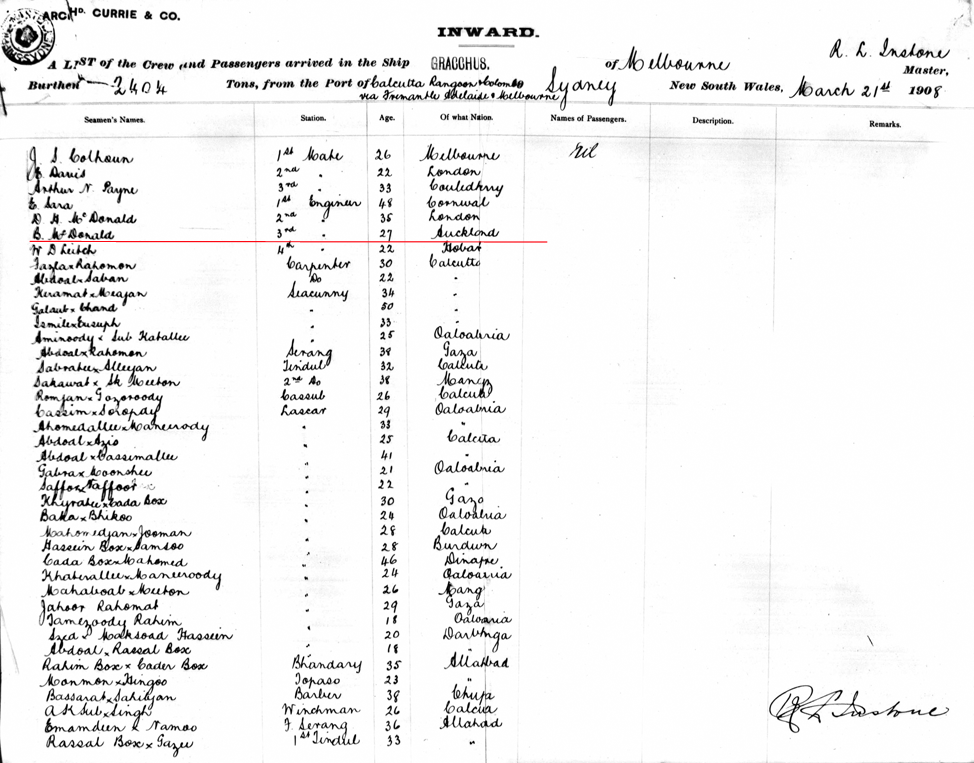 ARCHD. CURRIE & CO.
INWARD.
A LIST of the Crew and Passengers arrived in the Ship GRACCHUS. of Melbourne R. L. Instone Master,
Burthen 2404 Tons, from the Port of Calcutta Rangoon & Colombo Sydney New South Wales, March 21st 1908
via Fremantle Adelaide & Melbourne
Seamen's Names. Station. Age. Of what Nation. Names of Passengers. Description. Remarks.
J. S. Colhoun 1st Mate 26 Melbourne Nil
Davis 2nd " 22 London
Arthur N. Payne 3rd " 33
E. Sara 1st Engineer 48 Cornwal
D. H. McDonald 2nd " 35 London
B. McDonald 3rd " 27 Auckland
W D Leitch 4th " 22 Hobart
Fazla x Rahomon Carpenter 30 Calcutta
Abdoal x Saban Do 22 "
Keramat x Meajan Seacunny 34 "
Galaut x Chand " 50 "
Ismile x Eusuph " 33 "
Aminoody x Sub Katallee " 25 Oaloabria
Abdoal x Rahomon Serang 38 Gaza
Sabratee x Alleyan Tindul 32 Calcuta
Sakawat x Sk Meeton 2nd Do 38
Romjan x Gazoroody Cassub 26 Calcuta
Cassim x Soropdy Lascar 29 Oaloabria
Ahomedallee x Maneerody " 33 "
Abdoal x Azis " 25 Calcuta
Abdoal x Cassimallee " 41
Gabrax Moonshee " 21 Oaloabria
Saffor x Taffoor " 22 "
Khyratee x Cada Box " 30 Gazo
Baka x Bhikoo " 24 Oaloabria
Mahomedjan x Jooman " 28 Calcuta
Hassein Box x Samsoo " 28 Burdwn
Cada Box x Mahomed " 46 Dinapre
Khaterallee x Maneeroody " 24 Oaloabria
Mahaboab x Meeton " 26 Mang
Jahoor Rahomat " 29 Gaza
Tamezoody Rahim " 18 Oaloaria
Syed x Maksoad Hassein " 20 Darbhnga
Abdoal x Rassal Box " 18
Rahim Box x Cader Box Bhandary 35 Allahbad
Monmon x Hingoo Topaso 23 "
Bassarat x Sahibjan Barber 38 Chupa
A K Sub x Singh Winchman 26 Calcuta
Emamdeen x Namoo F. Serang 36 Allahad
Rassal Box x Gazee 1st Tindul 33 "
R L Instone